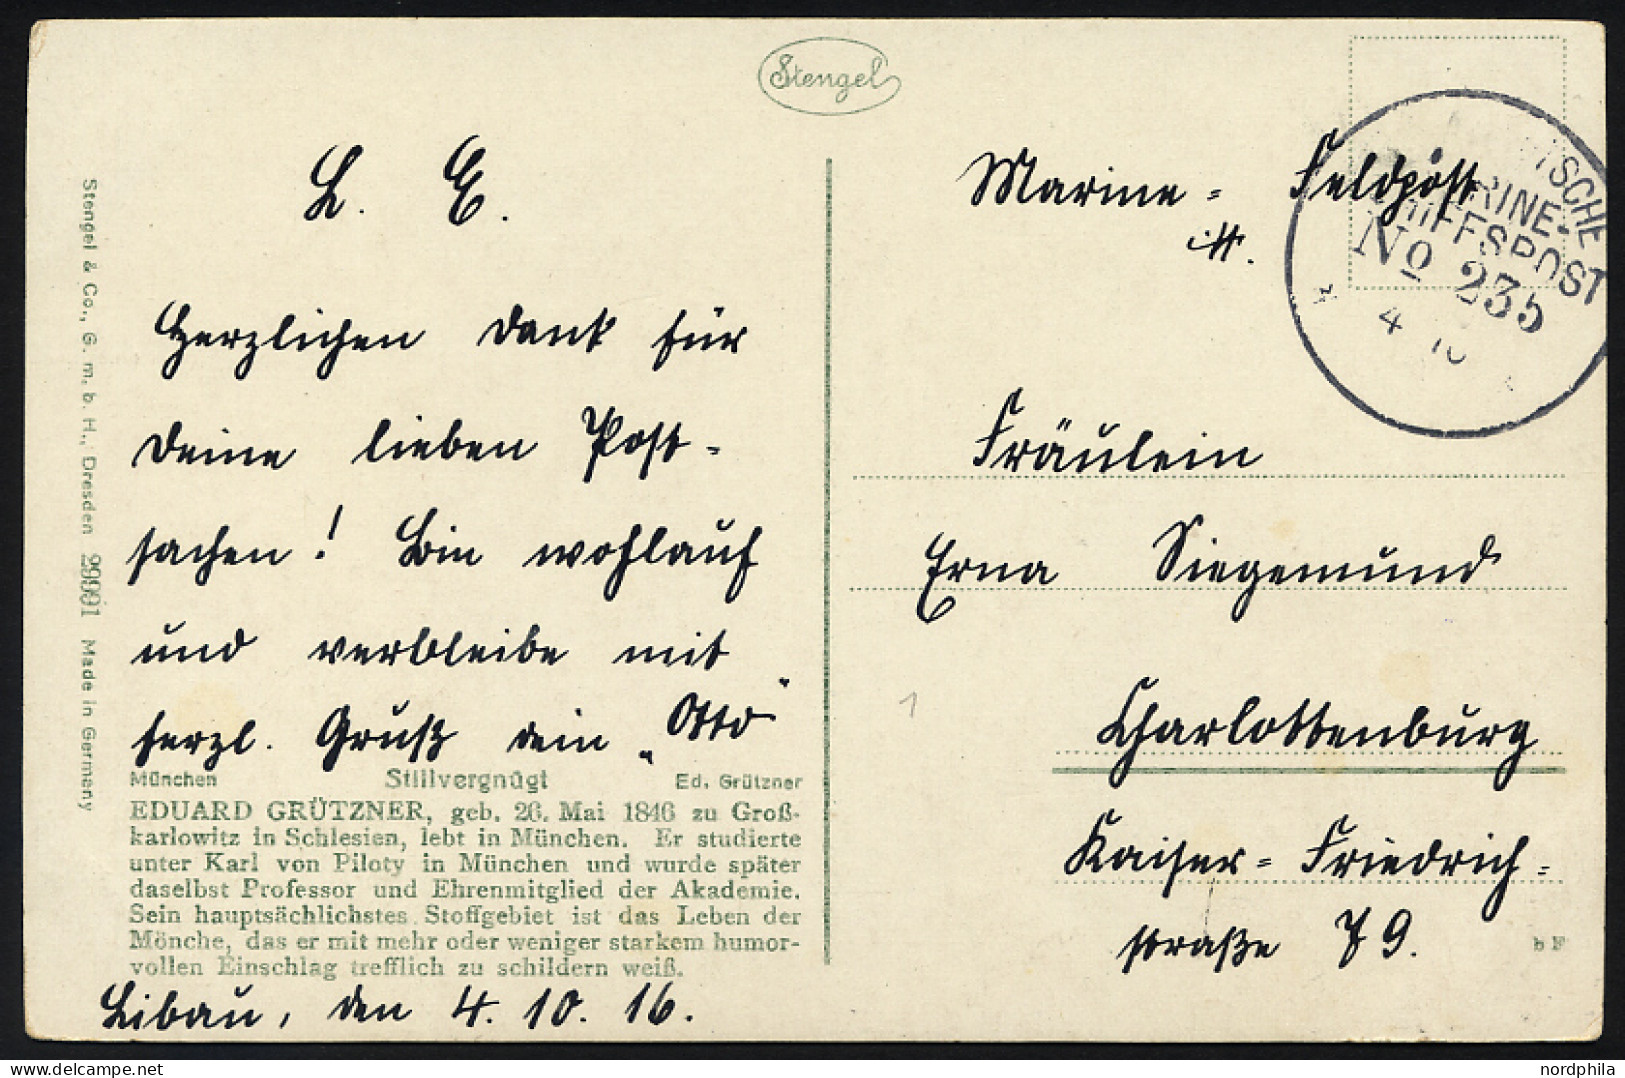 Stengel
L. E.
Herzlichen Dank für
Deine lieben Post-
sachen! Bin wohlauf
und verbleibe mit
herzl. Gruß dein „Otto"
München Stillvergnügt Ed. Grützner
EDUARD GRÜTZNER, geb. 26. Mai 1846 zu Groß-
karlowitz in Schlesien, lebt in München. Er studierte
unter Karl von Piloty in München und wurde später
daselbst Professor und Ehrenmitglied der Akademie.
Sein hauptsächlichstes Stoffgebiet ist das Leben der
Mönche, das er mit mehr oder weniger starkem humor-
vollen Einschlag trefflich zu schildern weiß.
Libau, den 4. 10. 16.
Stengel & Co., G. m. b. H., Dresden 29991 Made in Germany
Marine = Feldpost
TSCHE
RINE-
SCHIFFSPOST
No 235
4 10
Fräulein
Erna Siegemund
Charlottenburg
Kaiser = Friedrich =
straße 79.
1
nordphila